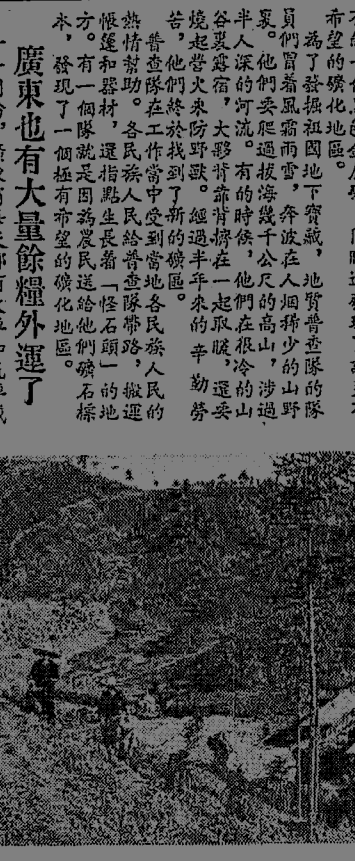 希望的礦化地區。
為了發掘祖國地下寶藏，地質普查隊的隊
員們冒着風霜雨雪，奔波在人烟稀少的山野
裏。他們要爬過拔海幾千公尺的高山，涉過
半人深的河流。有的時候，他們在很冷的山
谷裏露宿，大夥背靠背擠在一起取暖，還要
燒起營火來防野獸。經過半年來的辛勤勞
苦，他們終於找到了新的礦區。
普查隊在工作當中受到當地各民族人民的
熱情幫助。各民族人民給普查隊帶路，搬運
帳篷和器材，還指點生長着「怪石頭」的地
方。有一個隊就是因為農民送給他們礦石標
本，發現了一個極有希望的礦化地區。
廣東也有大量餘糧外運了